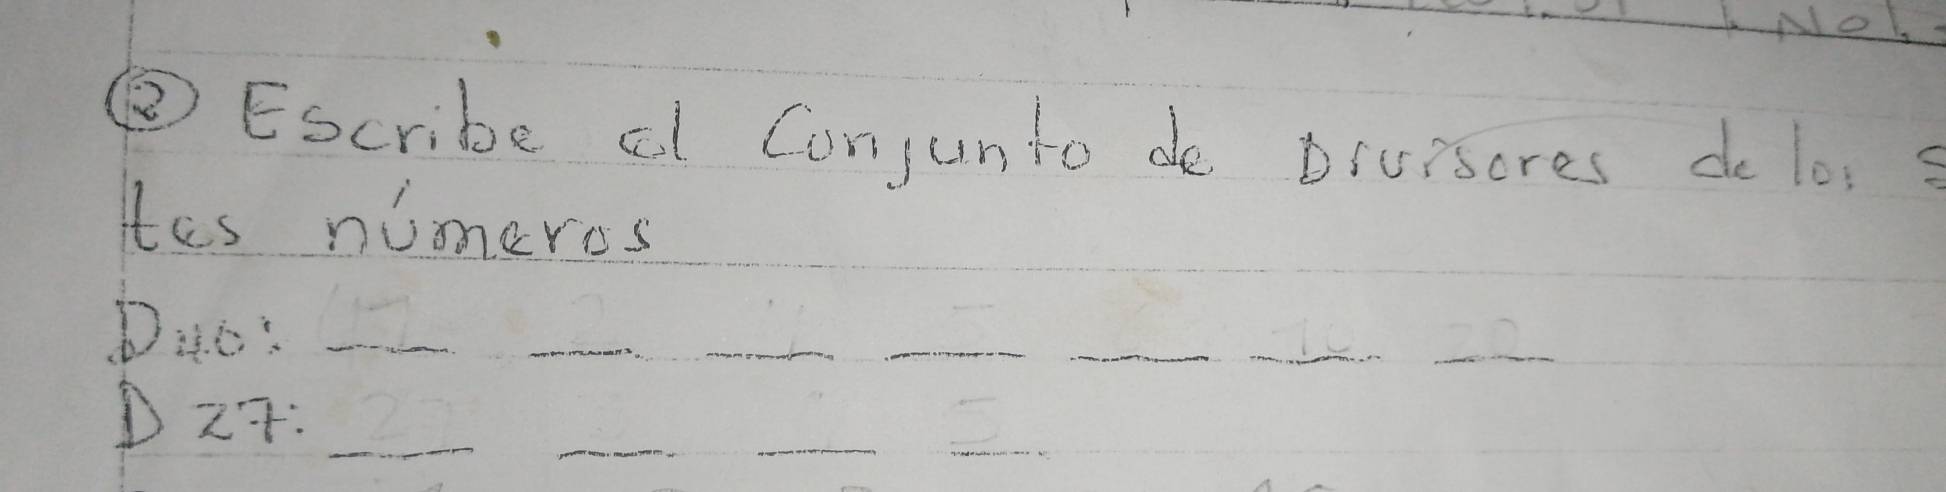 Nol.
② Escribe el Conjunto de Divisores de los
tes números
D40: 2 5 10 20
D 27: 27 5